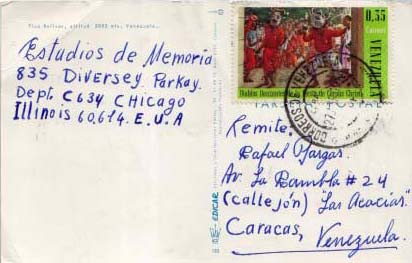 Pico Bolívar, altitud 5007 mts. Venezuela.
Estudios de Memoria
835 Diversey Parkay.
Dept. C634 CHicago
Illinois 60.614. E.U.A
0,55
Correos
VENEZUELA
Diablos Danzantes de la Fiesta de Corpus Christi
TARJETA POSTAL
EDICAR
Remite:
Rafael Vargas.
Av. La Rambla # 24
(callejón) "Las Acacias"
Caracas, Venezuela.